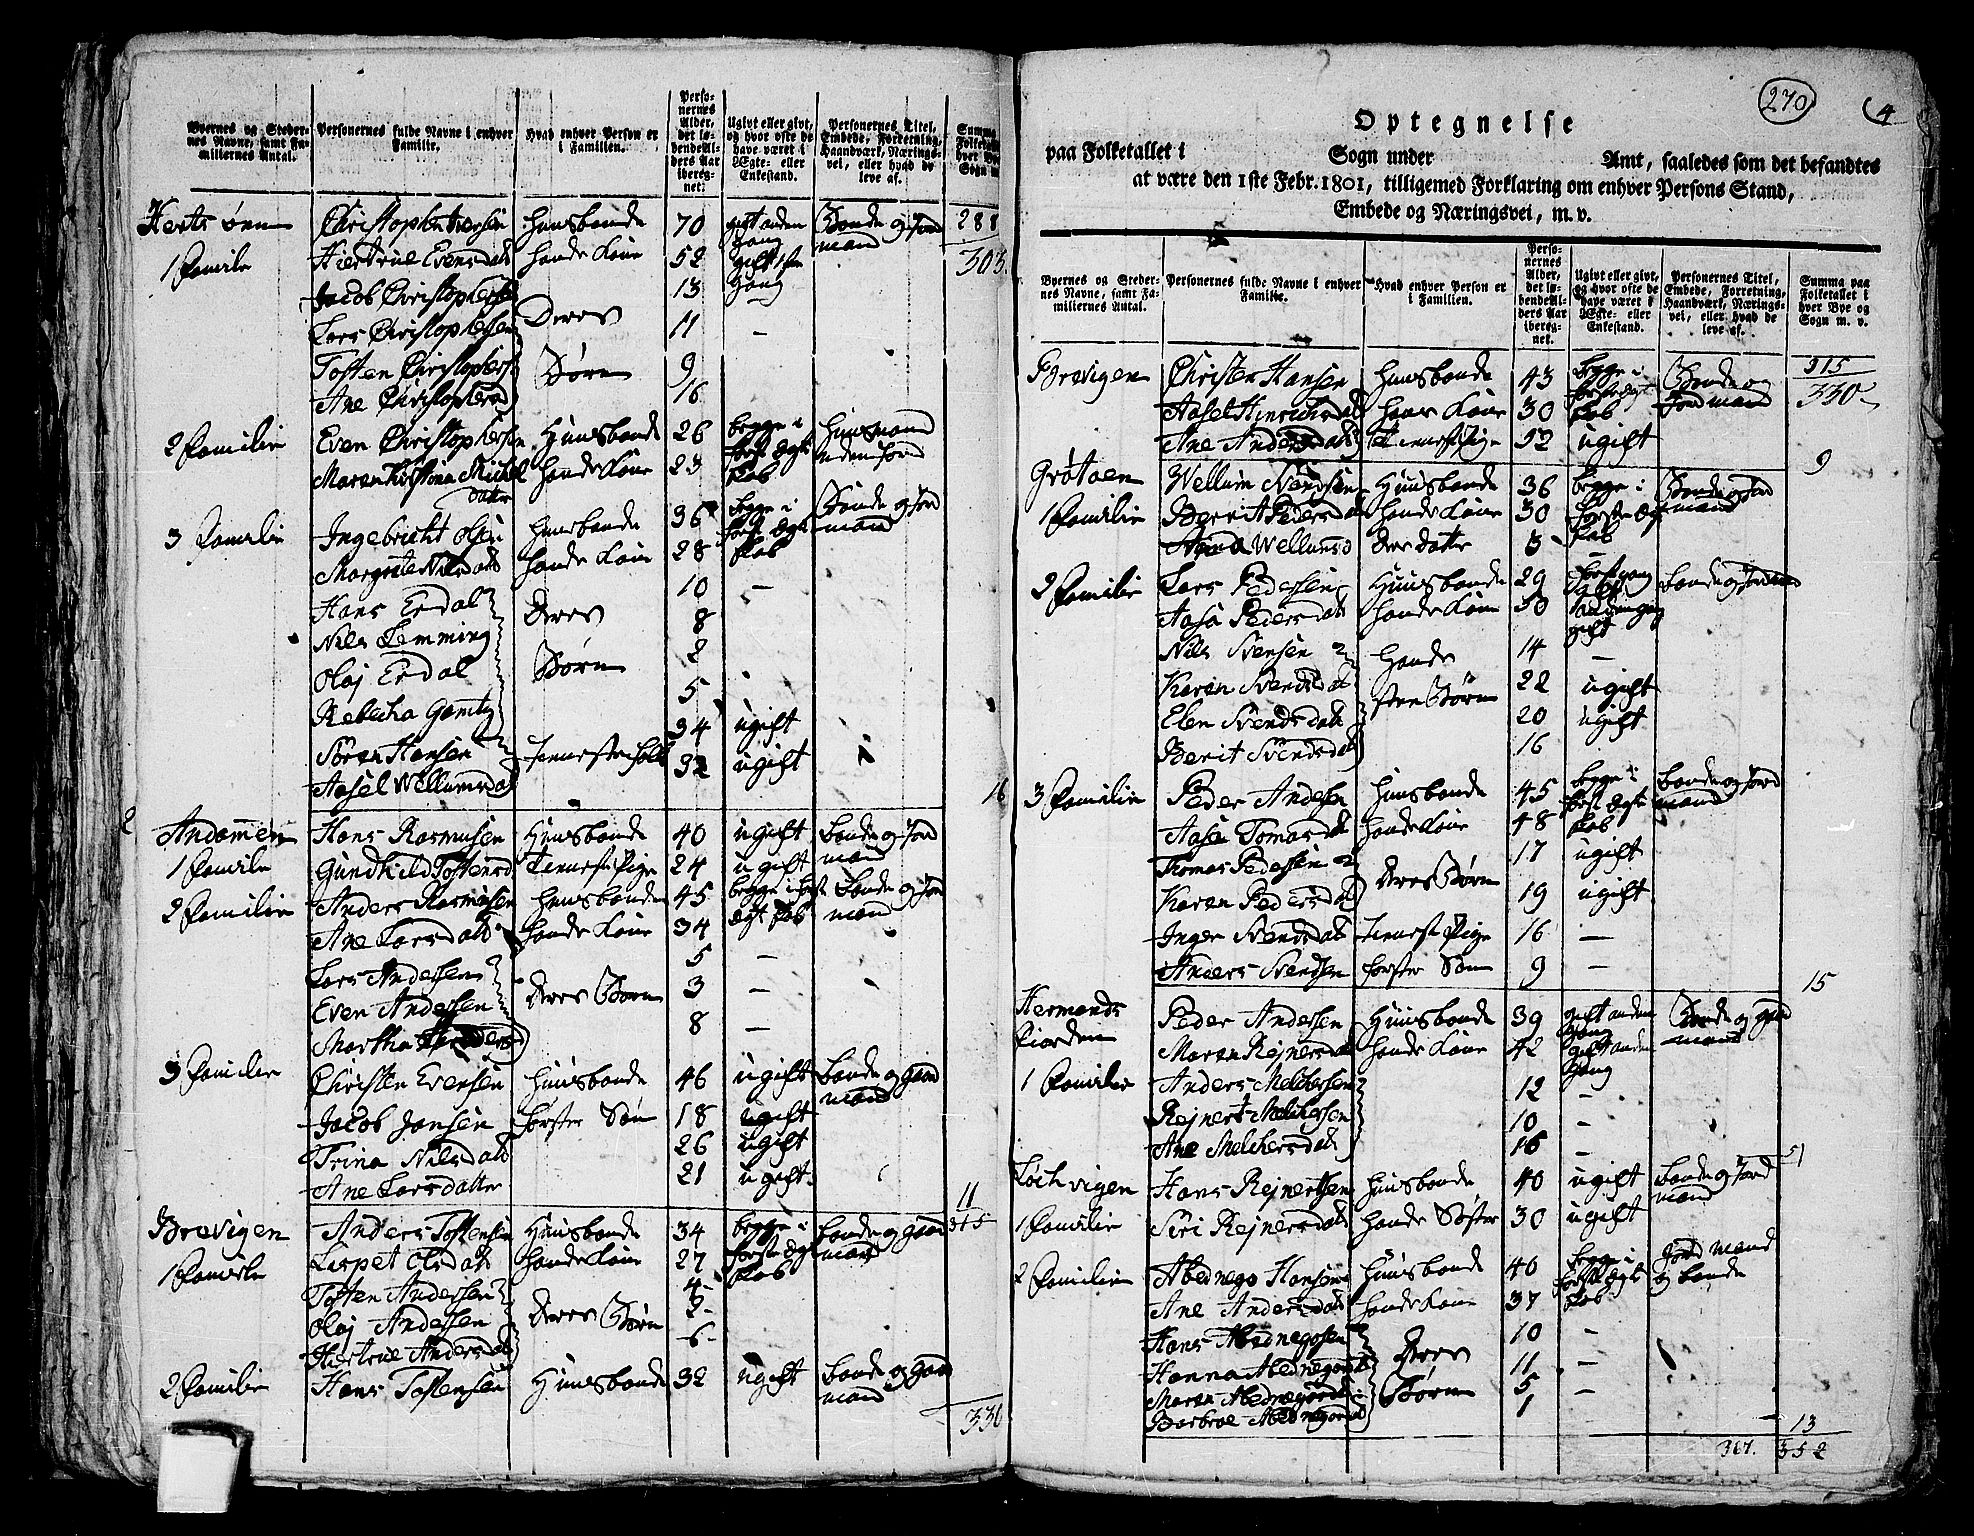 Byernes og Steder- nes Navne, samt Fa- milliernes Antal. | Personernes fulde Navne i enhver Familie. | Hvad enhver Person er i Familien. | Perso- nernes Alder, det lø- bende Al- ders Aar ibereg- net. | Ugivt eller givt, og hvor ofte de have været i Ægte- eller Enkestand. | Personernes Titel, Embede, Forretning, Haandværk, Nærings- vei, eller hvad de leve af.
Christopher Iversen Huusbonde 70 gift anden gang Bonde og Jord mand 288
1 Familie Evensdatt hands Kone 52 gift 1ste gang 303.
Jacob Christophersen 13
Lars Christophersen Deres 11 —
Tosten Christophers Børn 9
Ane Christophersd 16
2 Familie Even Christophersen Huusbonde 26 begge i første Ægte skab huusmand uden Jord
Maren Kistina Mickel datter hands Kone 23
3 Familie Ingebricht Olsen Huusbonde 36 begge i første Ægte skab Bonde og Jord mand
Margrete Nilsdatt hands Kone 28
Hans Erdal 10 —
Nils Lemming Deres 8
Olaj Erdal Børn 2
Rebecha 5
Sören Hansen Tieneste folk 34 ugift
Aasel Wellumsdat 32 ugift
16
Andammen Hans Rasmusen Huusbonde 40 ugift Bonde og Jord mand
1 Familie Gundhild Tostensd Tieneste Pige 24 ugift
2 Familie Anders Rasmusen Huusbonde 45 begge i første Ægteskab Bonde og Jord mand
Ane Larsdatt hands Kone 34
Lars Andersen 5 —
Even Andersen Deres Børn 3 —
Martha 8 —
3 Familie Christen Evensen Huusbonde 46 ugift Bonde og Gaard mand
Jacob Jansen foster Søn 18 ugift
Trina Nilsdatt 26 ugift
Ane Larsdatter 21 ugift
11
Brevigen Anders Tostensen Huusbonde 34 begge i første Ægte skab Bonde og Gaard mand 315
1 Familie Lispet Olsdatt hands Kone 27
Tosten Andersen 4
Olaj Andersen Deres Børn 2
Andersdat 6
2 Familie Hans Tostensen Huusbonde 32 ugift Bonde og Gaard mand
330
270
4
Optegnelse
paa Folketallet i Sogn under Amt, saaledes som det befandtes
at være den 1ste Febr. 1801, tilligemed Forklaring om enhver Persons Stand,
Embede og Næringsvei, m. v.
Byernes og Steder- nes Navne, samt Fa- milliernes Antal. | Personernes fulde Navne i enhver Familie. | Hvad enhver Person er i Familien. | Perso- nernes Alder, det lø- bende Al- ders Aar ibereg- net. | Ugivt eller givt, og hvor ofte de have været i Ægte- eller Enkestand. | Personernes Titel, Embede, Forretning, Haandværk, Nærings- vei, eller hvad de leve af. | Summa paa Folketallet i hver Bye og Sogn m. v.
Brevigen Christen Hansen Huusbonde 43 begge i første Ægte skab Bonde og Jord mand 315
Aasel Hinrichsdat hans Kone 30 330
Ane Andersdatt Tieneste Pige 52 ugift
9
Grötaen Wellum Svendsen Huusbonde 36 begge i første Ægte skab Bonde og Jord mand
1 Familie Berrit Pedersdat hands Kone 30
Wellumsd Deres datter 3
2 Familie Lars Pedersen Huusbonde 29 første gang gift Bonde og Jord mand
Aasa Pedersdatt hands Kone 50 anden gang gift
Nils Svensen hands 14 —
Karen Svendsdat steve Børn 22 ugift
Elen Svendsdatt 20 ugift
Berit Svendsdat 16
3 Familie Peder Andersen Huusbonde 45 begge i første Ægte skab Bonde og Jord mand
Aasa Tomasdatt hands Kone 48
Thomas Pedersen 17 ugift
Karen Pedersdat Deres Børn 19 ugift
Inger Svendsdatt Tieneste Pige 16 —
Anders Svendsen foster Søn 9 —
15
Hermands Peder Andersen Huusbonde 39 gift anden gang Bonde og Gaard mand
Fiorden Maren Rejnersdatt hands Kone 42 gift anden gang
1 Familie Anders Melchersen 12 -
Rejnert Melchersen 10 -
Ane Melchersdatt 16 -
51
Lochvigen Hans Rejnertsen Huusbonde 40 ugift Bonde og Jord mand
1 Familie Siri Rejnersdatt hands Søster 30 ugift
2 Familie Abednego Hansen Huusbonde 40 begge i første Ægte skab Jord mand og bonde
Ane Andersdatt hands Kone 37
Hans Abednegosen 10 —
Hanna Abednegosdt Deres 11 —
Maren Abednegosd Børn 5 —
Barbroe Abednegosd 1
13
367. 352